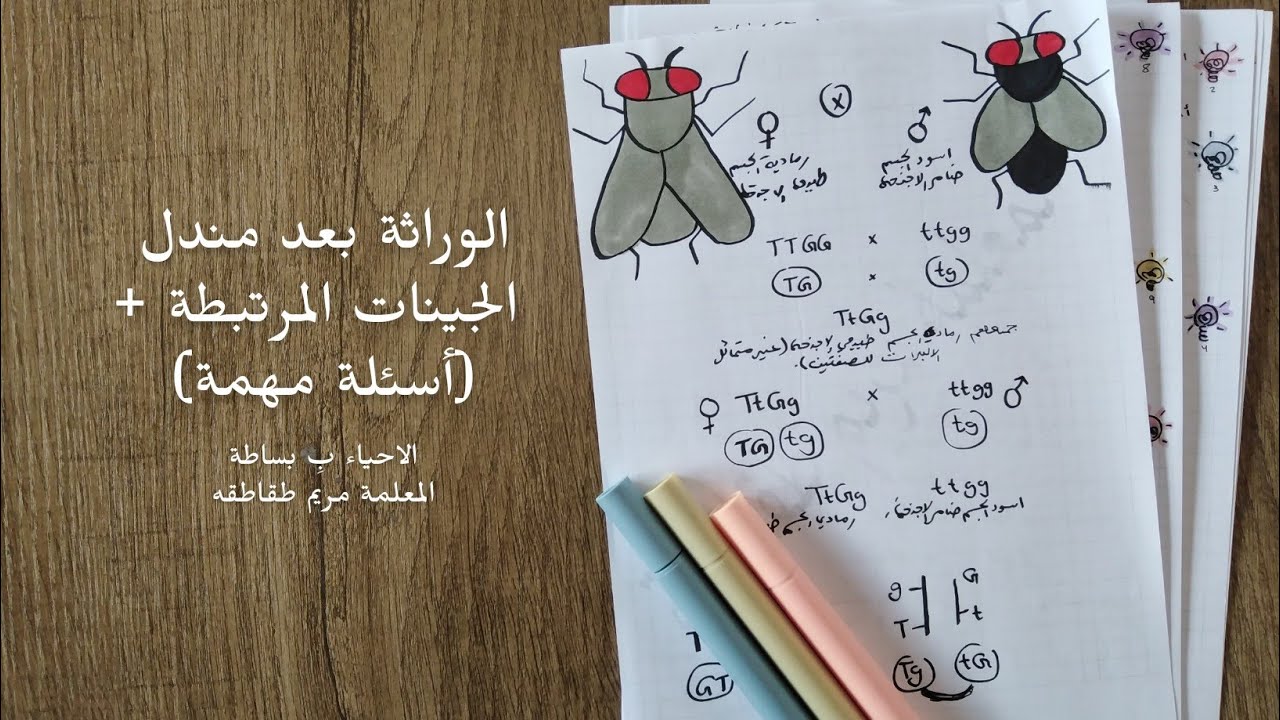 الوراثة بعد مندل
الجينات المرتبطة +
(أسئلة مهمة)
الاحياء بِ بساطة
المعلمة مريم طقاطقه
X
♀ ♂
رمادية الجسم اسود الجسم
طبيعية الاجنحة ضامر الاجنحة
TTGG × ttgg
TG × tg
TtGg
جميعهم رمادي الجسم طبيعي الاجنحة (غير متماثل
للصفتين).
♀ TtGg × ttgg ♂
TG tg tg
TtGg ttgg
رمادي الجسم اسود الجسم ضامر الاجنحة
g G
T t
GT Tg tG